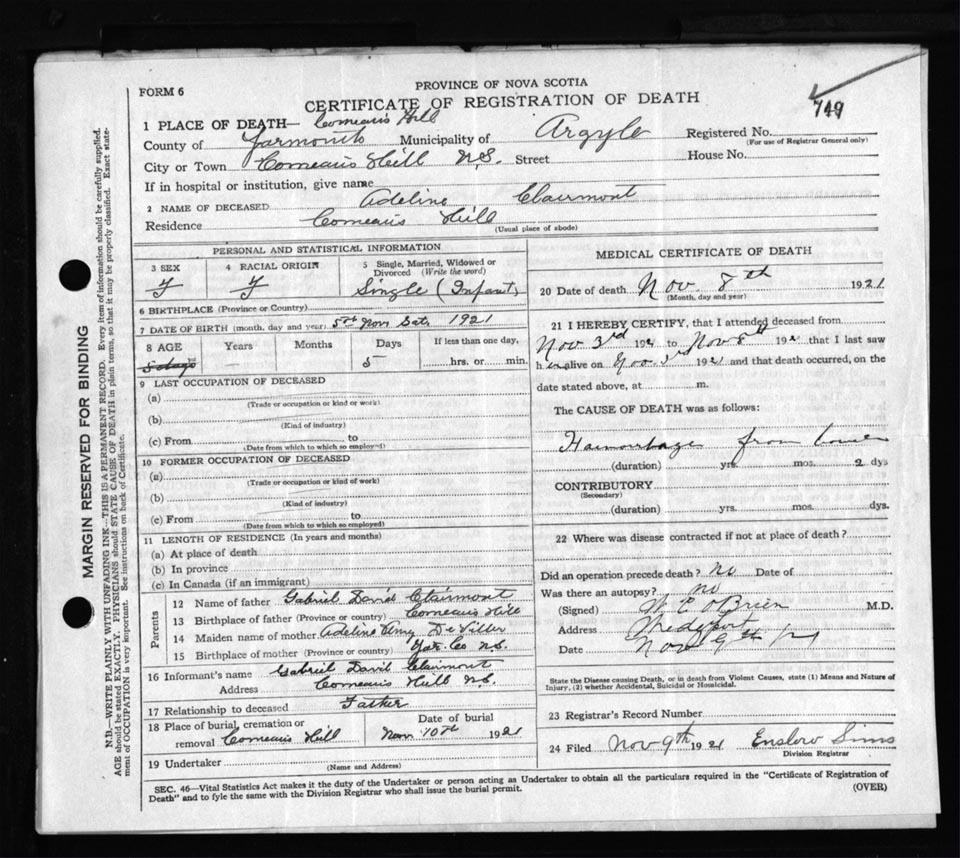 FORM 6
PROVINCE OF NOVA SCOTIA
CERTIFICATE OF REGISTRATION OF DEATH
749
1 PLACE OF DEATH— Comeau's Hill
County of Yarmouth Municipality of Argyle Registered No.
(For use of Registrar General only)
City or Town Comeau's Hill N.S. Street House No.
If in hospital or institution, give name
2 NAME OF DECEASED Adeline Clairmont
Residence Comeau's Hill
(Usual place of abode)
PERSONAL AND STATISTICAL INFORMATION
3 SEX F
4 RACIAL ORIGIN F
5 Single, Married, Widowed or Divorced (Write the word)
Single (Infant)
6 BIRTHPLACE (Province or Country)
7 DATE OF BIRTH (month, day and year) 5th Nov Sat. 1921
8 AGE Years Months Days If less than one day,
5 days 5 hrs. or min.
9 LAST OCCUPATION OF DECEASED
(a)
(Trade or occupation or kind or work)
(b)
(Kind of industry)
(c) From to
(Date from which to which so employed)
10 FORMER OCCUPATION OF DECEASED
(a)
(Trade or occupation or kind of work)
(b)
(Kind of industry)
(c) From to
(Date from which to which so employed)
11 LENGTH OF RESIDENCE (In years and months)
(a) At place of death
(b) In province
(c) In Canada (if an immigrant)
Parents
12 Name of father Gabriel David Clairmont
13 Birthplace of father (Province or country) Comeau's Hill
14 Maiden name of mother Adeline Amy DeViller
15 Birthplace of mother (Province or country) Yar. Co N.S.
16 Informant's name Gabriel David Clairmont
Address Comeau's Hill N.S.
17 Relationship to deceased Father
18 Place of burial, cremation or Date of burial
removal Comeau's Hill Nov 10th 1921
19 Undertaker
(Name and Address)
MEDICAL CERTIFICATE OF DEATH
20 Date of death Nov. 8th 1921
(Month, day and year)
21 I HEREBY CERTIFY, that I attended deceased from
Nov 3rd 192 to Nov 8th 192 that I last saw
h alive on Nov. 3rd 1921 and that death occurred, on the
date stated above, at m.
The CAUSE OF DEATH was as follows:
Haemorrhage from
(duration) yrs. mos. 2 dys
CONTRIBUTORY
(Secondary)
(duration) yrs. mos. dys.
22 Where was disease contracted if not at place of death?
Did an operation precede death? No Date of
Was there an autopsy? No
(Signed) W C O'Brien M.D.
Address Wedgeport
Date Nov 9th
State the Disease causing Death, or in death from Violent Causes, state (1) Means and Nature of
Injury, (2) whether Accidental, Suicidal or Homicidal.
23 Registrar's Record Number
24 Filed Nov 9th 1921 Enslow Sims
Division Registrar
SEC. 46—Vital Statistics Act makes it the duty of the Undertaker or person acting as Undertaker to obtain all the particulars required in the "Certificate of Registration of
Death" and to fyle the same with the Division Registrar who shall issue the burial permit.
(OVER)
MARGIN RESERVED FOR BINDING
N.B.—WRITE PLAINLY WITH UNFADING INK—THIS IS A PERMANENT RECORD. Every item of information should be carefully supplied.
AGE should be stated EXACTLY. PHYSICIANS should STATE CAUSE OF DEATH in plain terms, so that it may be properly classified. Exact state-
ment of OCCUPATION is very important. See instructions on back of Certificate.